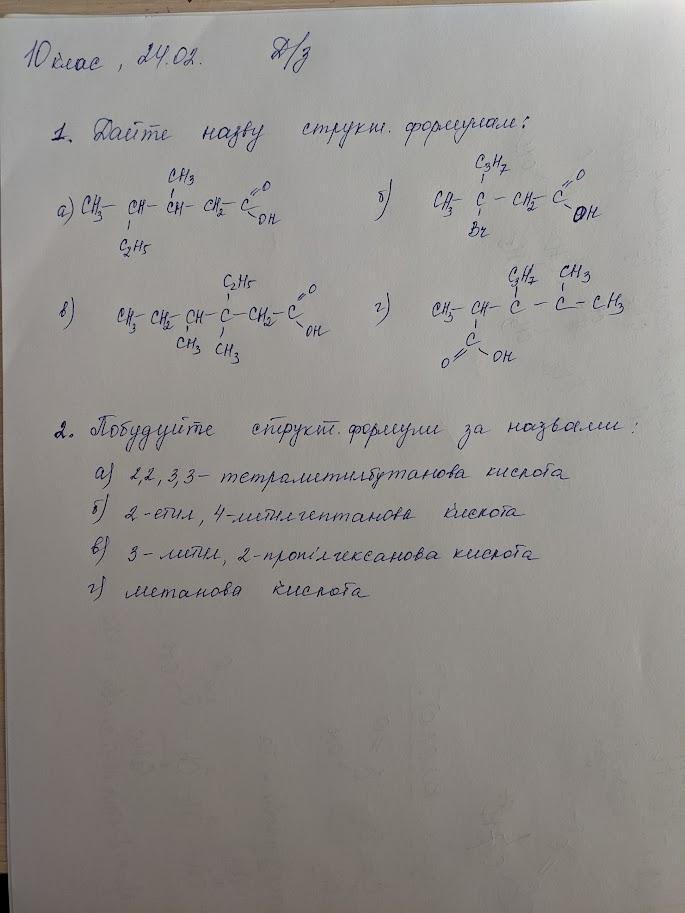 10 клас, 24.02. Д/з
1. Дайте назву структ. формулам:
CH₃
а) CH₃ – CH – CH – CH₂ – C
O
OH
C₂H₅
C₃H₇
б) CH₃ – C – CH₂ – C
O
OH
Br
C₂H₅
в) CH₃ – CH₂ – CH – C – CH₂ – C
O
OH
CH₃ CH₃
C₃H₇ CH₃
г) CH₃ – CH – C – C – CH₃
C
O OH
2. Побудуйте структ. формули за назвами:
а) 2,2,3,3 – тетраметилбутанова кислота
б) 2-етил, 4-метилгептанова кислота
в) 3 – метил, 2-пропілгексанова кислота
г) метанова кислота